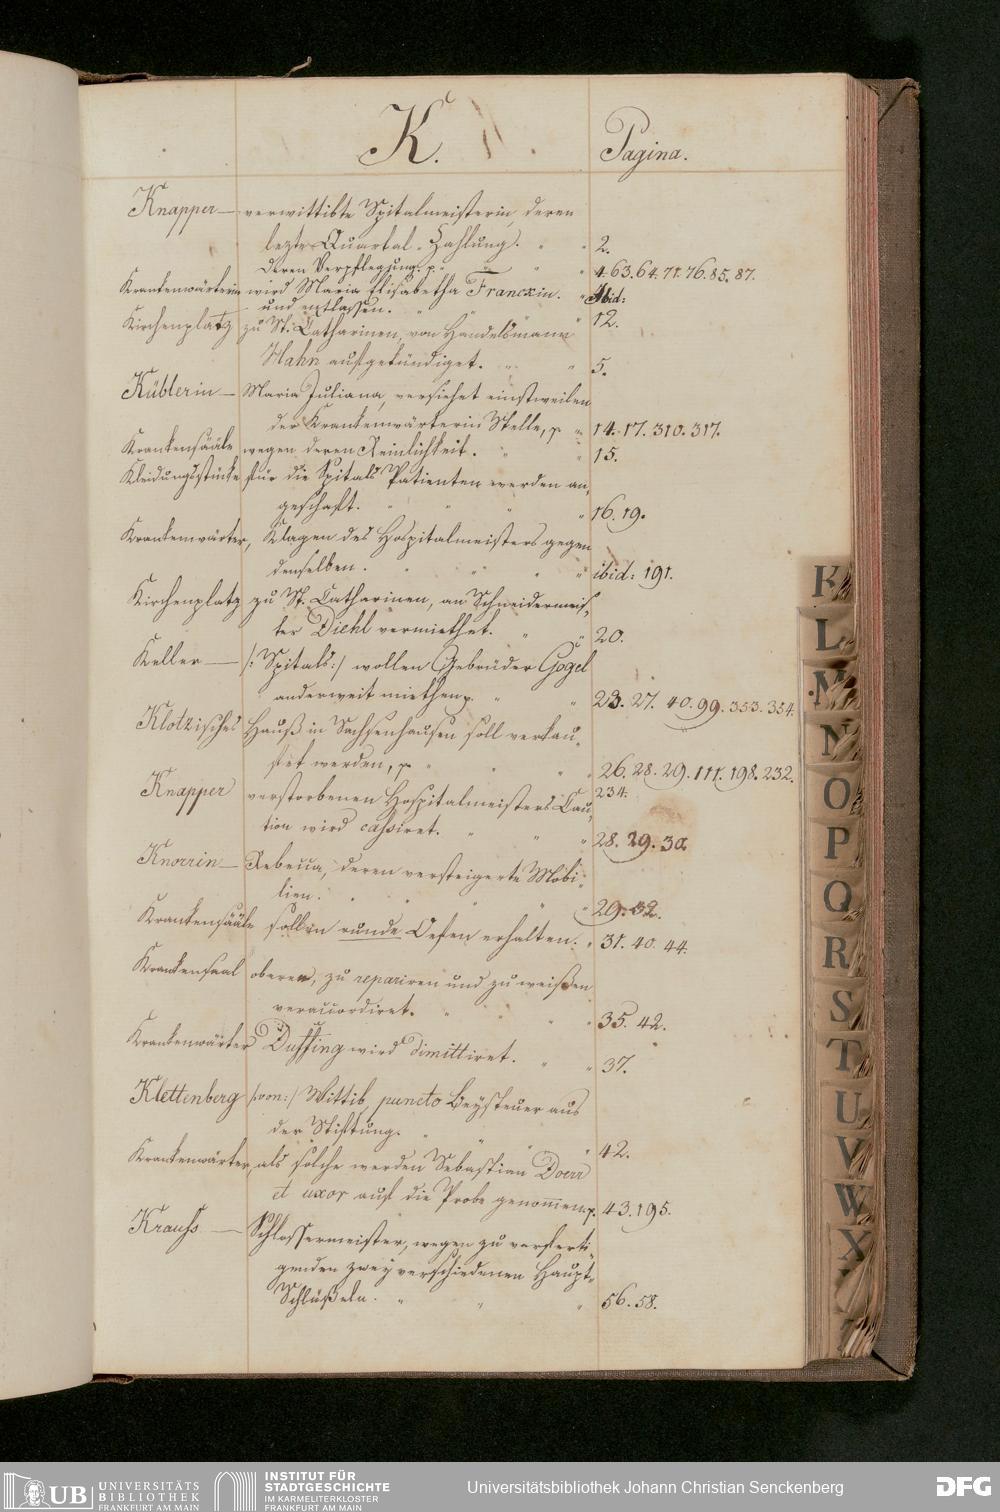 K. Pagina.
Knapper — verwittibte Spitalmeisterin, deren
lezte Quartal-Zahlung. 2.
deren Verpflegung. p. 4. 63. 64. 71. 76. 85. 87.
Krankenwärterin wird Maria Elisabetha Franckin. Ibid:
und entlassen. 12.
Kirchenplatz zu St. Catharinen, von Handelsmann
Hahn aufgekündiget. 5.
Küblerin — Maria Juliana, versiehet einstweilen
der Krankenwärterin Stelle, p 14. 17. 310. 317.
Krankensääle wegen deren Reinlichkeit. 15.
Kleidungsstücke für die Spitals Patienten werden an-
geschaft. 16. 19.
Krankenwärter, Klagen des Hospitalmeisters gegen
denselben. ibid: 191.
Kirchenplatz zu St. Catharinen, an Schneidermeis-
ter Diehl vermiethet. 20.
Keller — /: Spitals :/ wollen Gebrüder Gogel
anderweit miethen p. 23. 27. 40. 99. 353. 354.
Klotzisches Hauß in Sachsenhausen soll verkau-
fet werden, p 26. 28. 29. 111. 198. 232.
234.
Knapper verstorbenen Hospitalmeisters Cau-
tion wird cassiret. 28. 29. 30.
Knorrin — Rebecca, deren versteigerte Mobi-
lien. 29. 32.
Krankensääle sollen runde Oefen erhalten. 31. 40. 44.
Krankensaal oberen, zu repariren und zu weißen
veraccordiret. 35. 42.
Krankenwärter Duffing wird dimittiret. 37.
Klettenberg /: von :/ Wittib puncto Beysteuer aus
der Stiftung. 42.
Krankenwärter, als solche werden Sebastian Doerr
et uxor auf die Probe genommen p. 43. 195.
Krauss — Schlossermeister, wegen zu verferti-
genden zwey verschiedenen Haupt-
Schlüßeln. 56. 58.
K
L
M
N
O
P
Q
R
S
T
U
V
W
X
Z
UB UNIVERSITÄTS
BIBLIOTHEK
FRANKFURT AM MAIN
INSTITUT FÜR
STADTGESCHICHTE
IM KARMELITERKLOSTER
FRANKFURT AM MAIN
Universitätsbibliothek Johann Christian Senckenberg
DFG